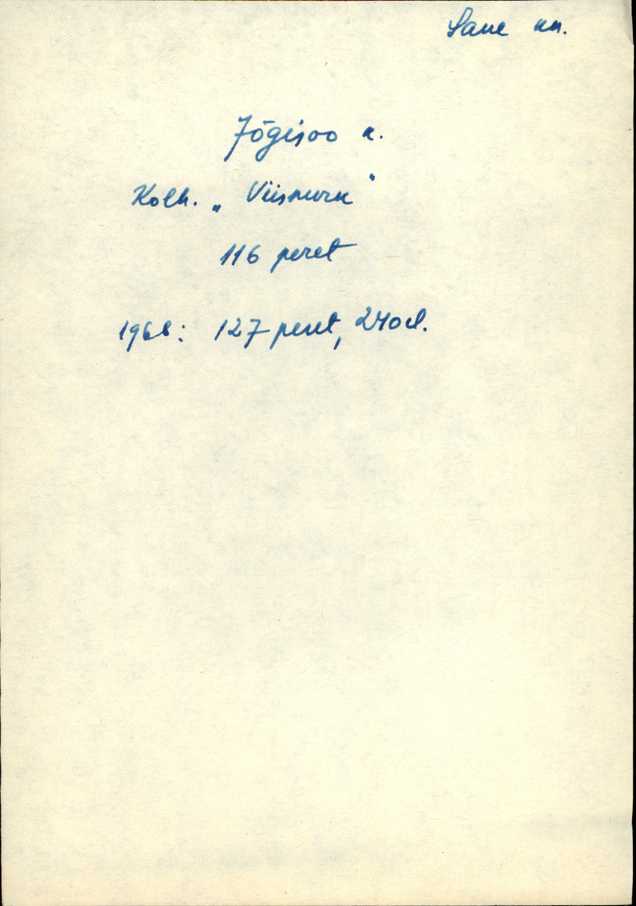 Saue kn.
Jõgisoo k.
Kolh. „Viisnurk"
116 peret
1968: 127 peret, 240 el.